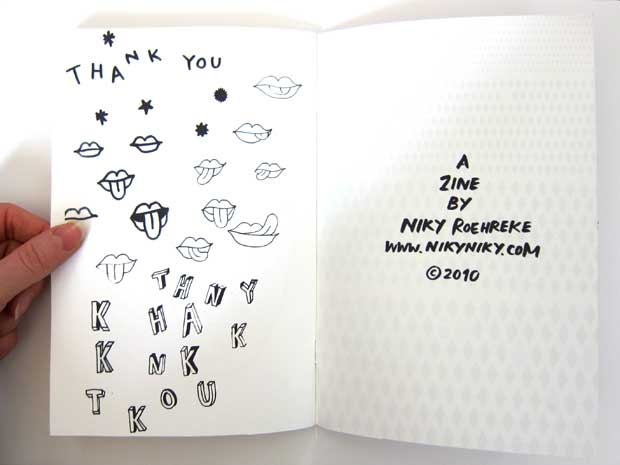 THANK YOU
THNY
K HA K
K NK
T K O U
A
ZINE
BY
NIKY ROEHREKE
WWW.NIKYNIKY.COM
©2010